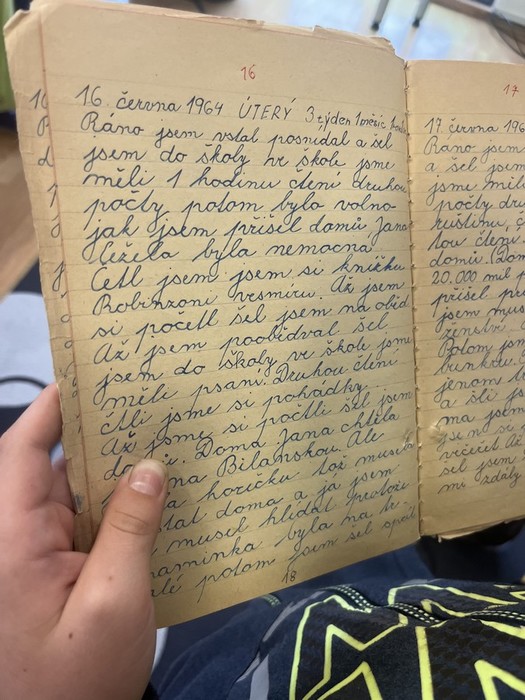 16
16. června 1964 ÚTERÝ 3 týden 1 měsíc
Ráno jsem vstal posnídal a šel
jsem do školy ve škole jsme
měli 1 hodinu čtení druhou
počty potom bylo volno
jak jsem přišel domů Jana
ležela byla nemocná.
Četl jsem jsem si knížku
Robinzoni vesmíru. Až jsem
si početl šel jsem na oběd
Až jsem poobědval šel
jsem do školy ve škole jsme
měli psaní. Druhou čtení
čtli jsme si pohádky.
Až jsme si počtli šel jsem
Doma Jana chtěla
na Bílanskou. Ale
horíčku tož musela
doma a já jsem
musel hlídat protože
maminka byla na
potom jsem šel spát
18
17
17. června 196
Ráno jsem
a šel jsem
jsme měli
počty dru
ruštinu, č
tou čtení
domů. Dom
20.000 mil p
přišel pr
jsem mus
ženství
Potom jsm
bunkou.
jenom b
a šli js
ma jsem
jse n si s
večeřet Až
šel jsem
mi zdály